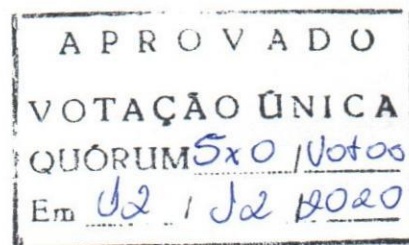 APROVADO
VOTAÇÃO ÚNICA
QUÓRUM 5x0 / Votos
Em 02 / 12 / 2020